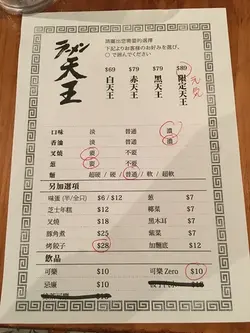 ラーメン
天王
請圈出您需要的選擇
下記よりお客様のお好みを選び、
○で囲んでください
$69 $79 $79 $89
白天王 赤天王 黑天王 限定天王
口味 淡 普通 濃
香油 淡 普通 濃
叉燒 要 不要
蔥 要 不要
麵 超硬 / 硬 / 普通 / 軟 / 超軟
另加選項
味蛋 (半/全只) $6 / $12
芝士年糕 $12
叉燒 $18
豚角煮 $25
烤餃子 $28
蔥 $7
椰菜 $7
黑木耳 $7
紫菜 $7
加麵底 $12
飲品
可樂 $10
忌廉 $10
可樂 Zero $10